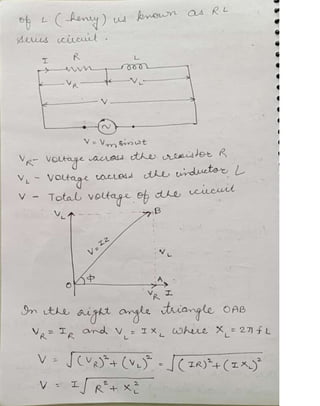 of L (henry) is known as RL
series circuit.
I R L
VR VL
V
V = Vm sin wt
VR - Voltage across the resistor R
VL - Voltage across the inductor L
V - Total voltage of the circuit
VL B
V = IZ VL
O ϕ A
VR I
In the right angle triangle OAB
VR = IR and VL = IXL where XL = 2πfL
V = √(VR)² + (VL)² = √(IR)² + (IXL)²
V = I√R² + XL²